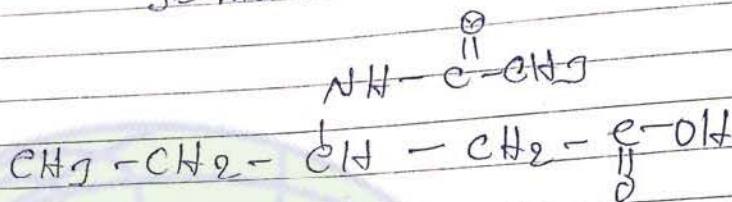 O
||
NH - C - CH3
|
CH3 - CH2 - CH - CH2 - C - OH
||
O